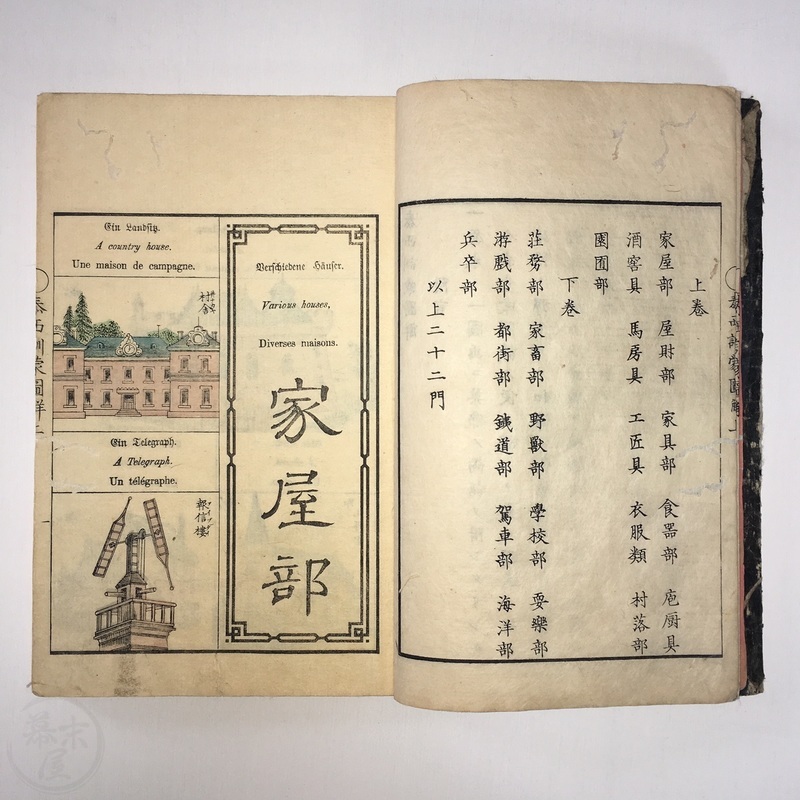 上卷
家屋部 屋財部 家具部 食器部 庖厨具
酒窖具 馬房具 工匠具 衣服類 村落部
園囿部
下卷
荘務部 家畜部 野獸部 學校部 耍樂部
游戲部 都街部 銕道部 駕車部 海洋部
兵卒部
以上二十二門
Verschiedene Häuser.
Various houses,
Diverses maisons.
家屋部
Ein Landsitz.
A country house.
Une maison de campagne.
村舍
Ein Telegraph.
A Telegraph.
Un télégraphe.
報信樓
泰西訓蒙圖解上
幕末屋